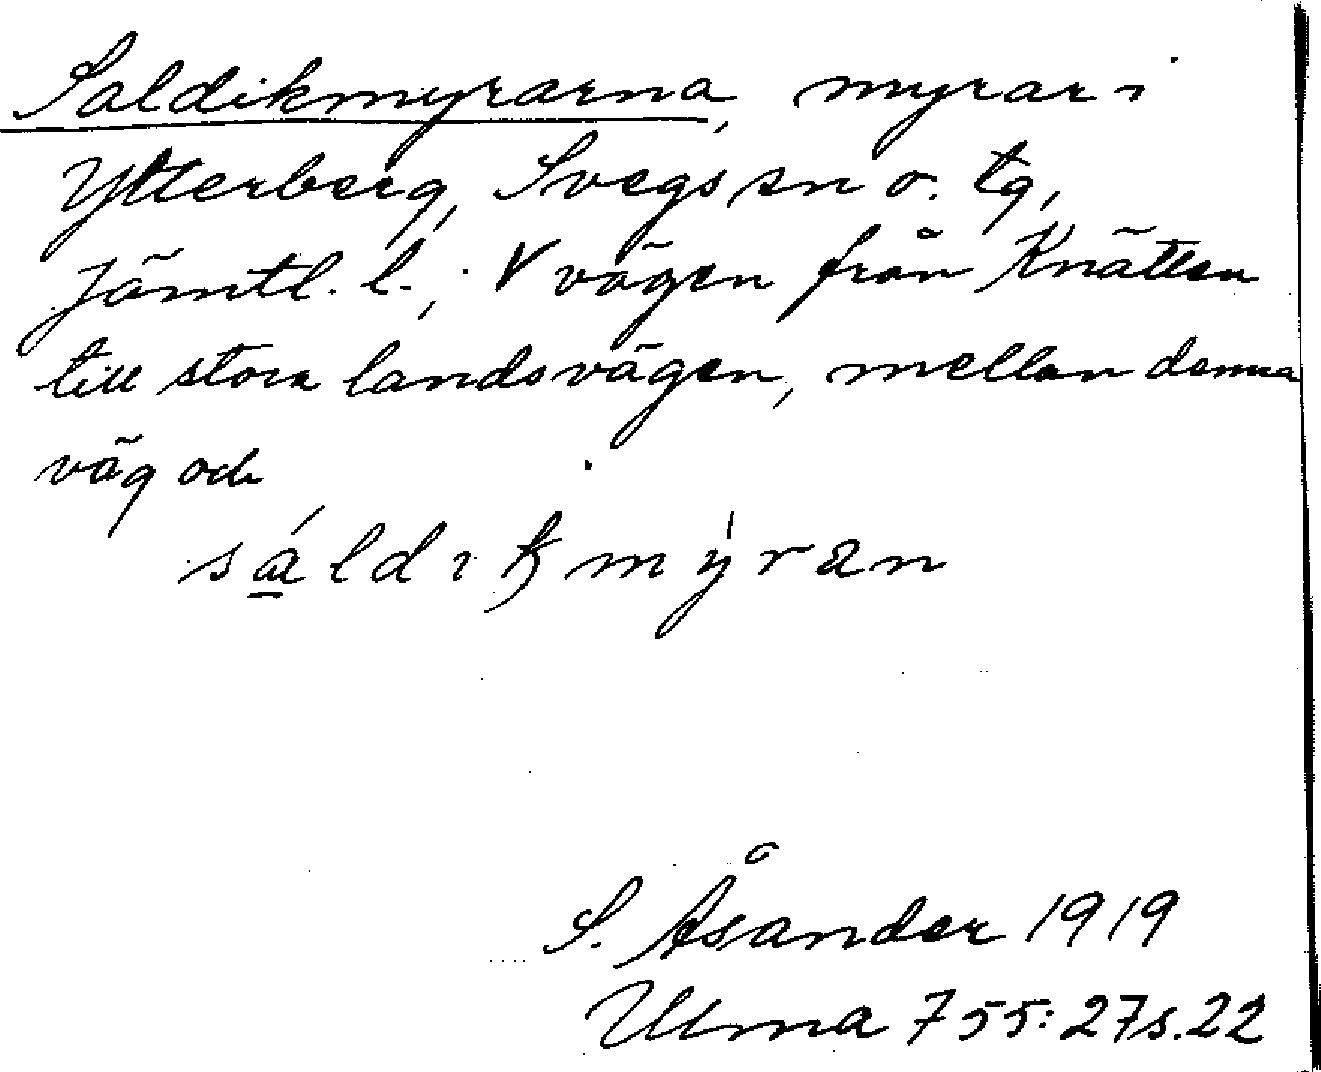 Saldikmyrarna, myrar i
Ytterberg, Svegs sn o. tg,
Jämtl. l.; V vägen från Knätten
till stora landsvägen, mellan denna
väg och
sáldıkmýran
S. Åsander 1919
Ulma 755:27 s. 22